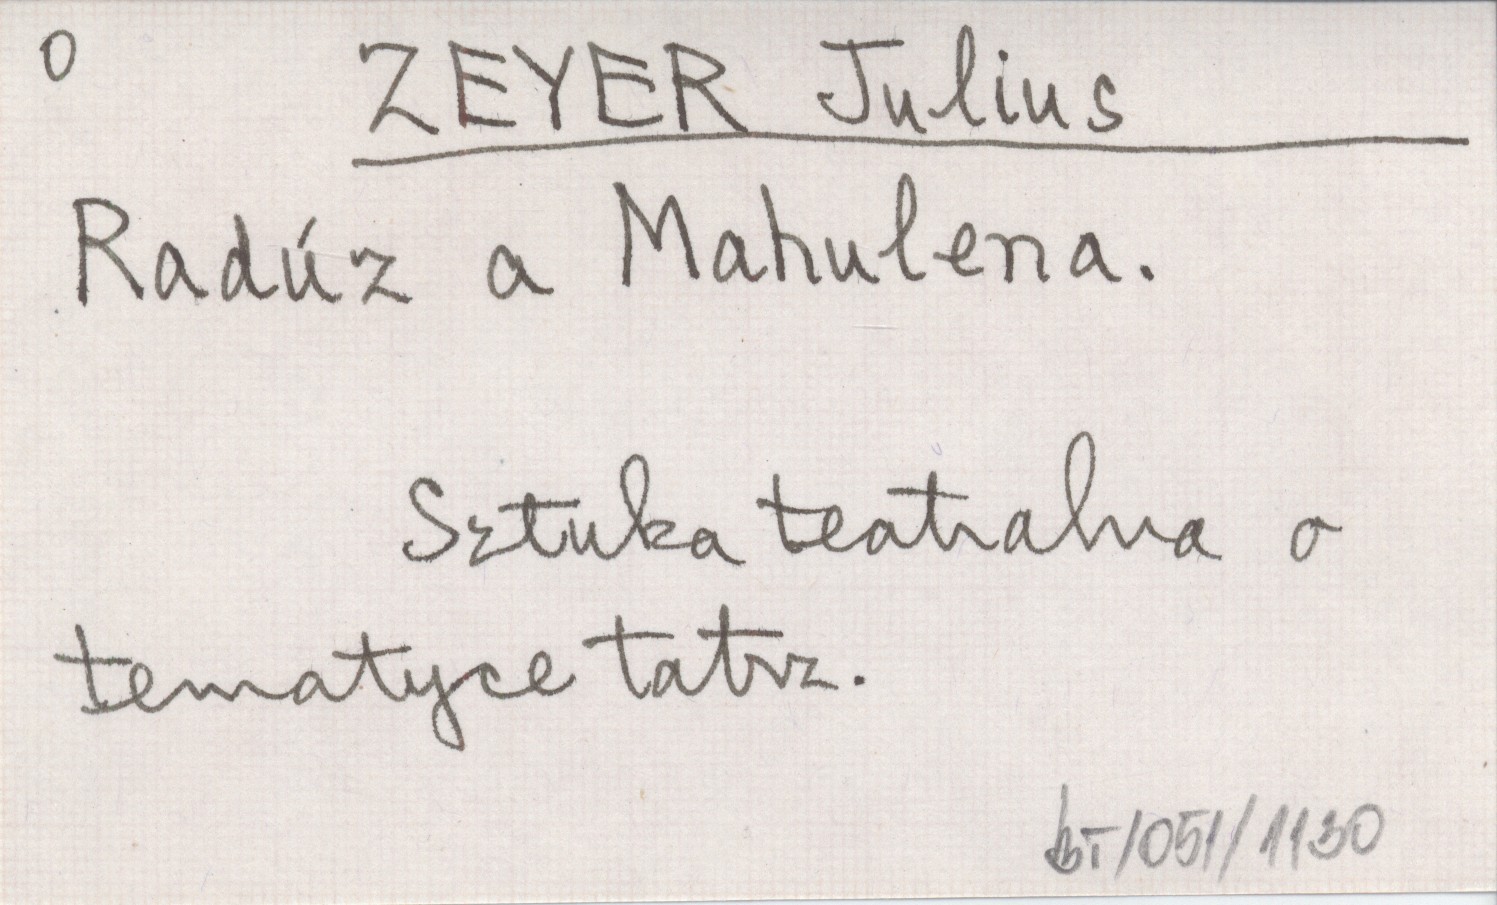 o ZEYER Julius
Radúz a Mahulena.
Sztuka teatralna o
tematyce tatrz.
bT/051/1130